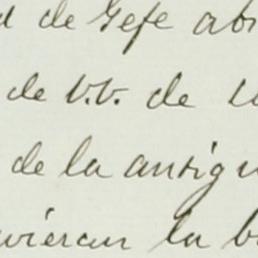 d de Gefe ab
de V.V. de
de la antigu
vieran la b